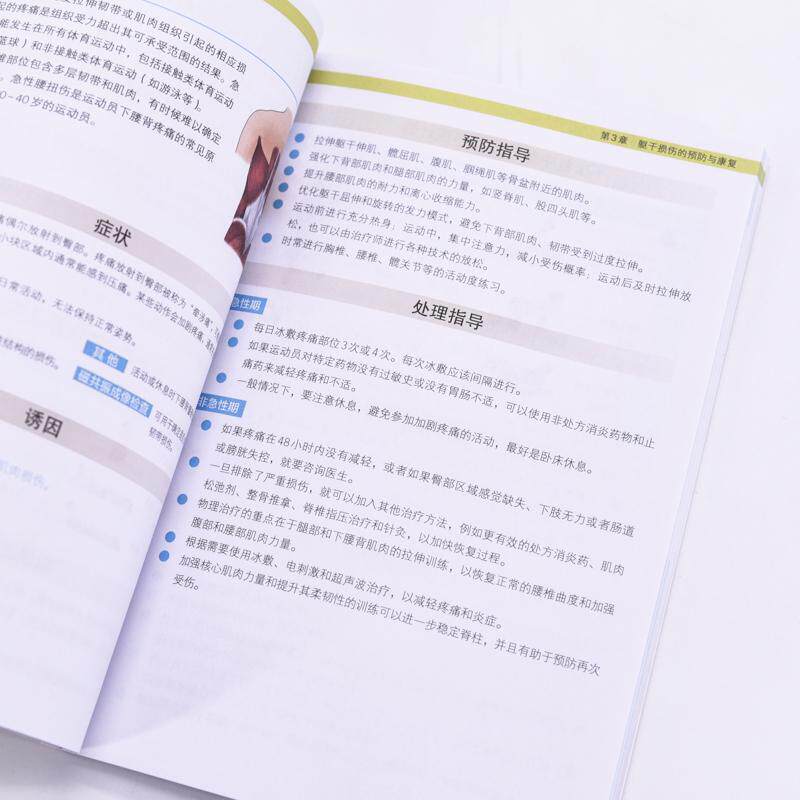 拉伸韧带或肌肉组织引起的相应损
起的疼痛是组织受力超出其可承受范围的结果。急
能发生在所有体育运动中，包括接触类体育运动
篮球）和非接触类体育运动（如游泳等）。
椎部位包含多层韧带和肌肉，有时候难以确定
。急性腰扭伤是运动员下腰背疼痛的常见原
0-40岁的运动员。
症状
痛偶尔放射到臀部。疼痛放射到臀部被称为“牵涉痛”，
小块区域内通常能感到压痛。某些动作会加剧疼痛，
日常活动，无法保持正常姿势。
结构的损伤。
其他
活动或休息时下腰背
磁共振成像检查
可用于确诊
韧带损伤。
诱因
肌肉损伤。
第3章 躯干损伤的预防与康复
预防指导
拉伸躯干伸肌、髋屈肌、腹肌、腘绳肌等骨盆附近的肌肉。
强化下背部肌肉和腿部肌肉的力量，如竖脊肌、股四头肌等。
提升腰部肌肉的耐力和离心收缩能力。
优化躯干屈伸和旋转的发力模式，避免下背部肌肉、韧带受到过度拉伸。
运动前进行充分热身；运动中，集中注意力，减小受伤概率；运动后及时拉伸放
松，也可以由治疗师进行各种技术的放松。
时常进行胸椎、腰椎、髋关节等的活动度练习。
处理指导
急性期
每日冰敷疼痛部位3次或4次。每次冰敷应该间隔进行。
如果运动员对特定药物没有过敏史或没有胃肠不适，可以使用非处方消炎药物和止
痛药来减轻疼痛和不适。
一般情况下，要注意休息，避免参加加剧疼痛的活动，最好是卧床休息。
非急性期
如果疼痛在48小时内没有减轻，或者如果臀部区域感觉缺失、下肢无力或者肠道
或膀胱失控，就要咨询医生。
一旦排除了严重损伤，就可以加入其他治疗方法，例如更有效的处方消炎药、肌肉
松弛剂、整骨推拿、脊椎指压治疗和针灸，以加快恢复过程。
物理治疗的重点在于腿部和下腰背肌肉的拉伸训练，以恢复正常的腰椎曲度和加强
腹部和腰部肌肉力量。
根据需要使用冰敷、电刺激和超声波治疗，以减轻疼痛和炎症。
加强核心肌肉力量和提升其柔韧性的训练可以进一步稳定脊柱，并且有助于预防再次
受伤。